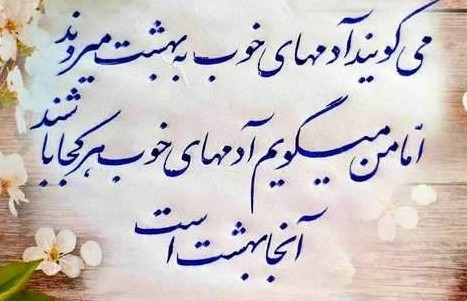 می گویند آدمهای خوب به بهشت میروند
امّا من میگویم آدمهای خوب هر کجا باشند
آنجا بهشت است